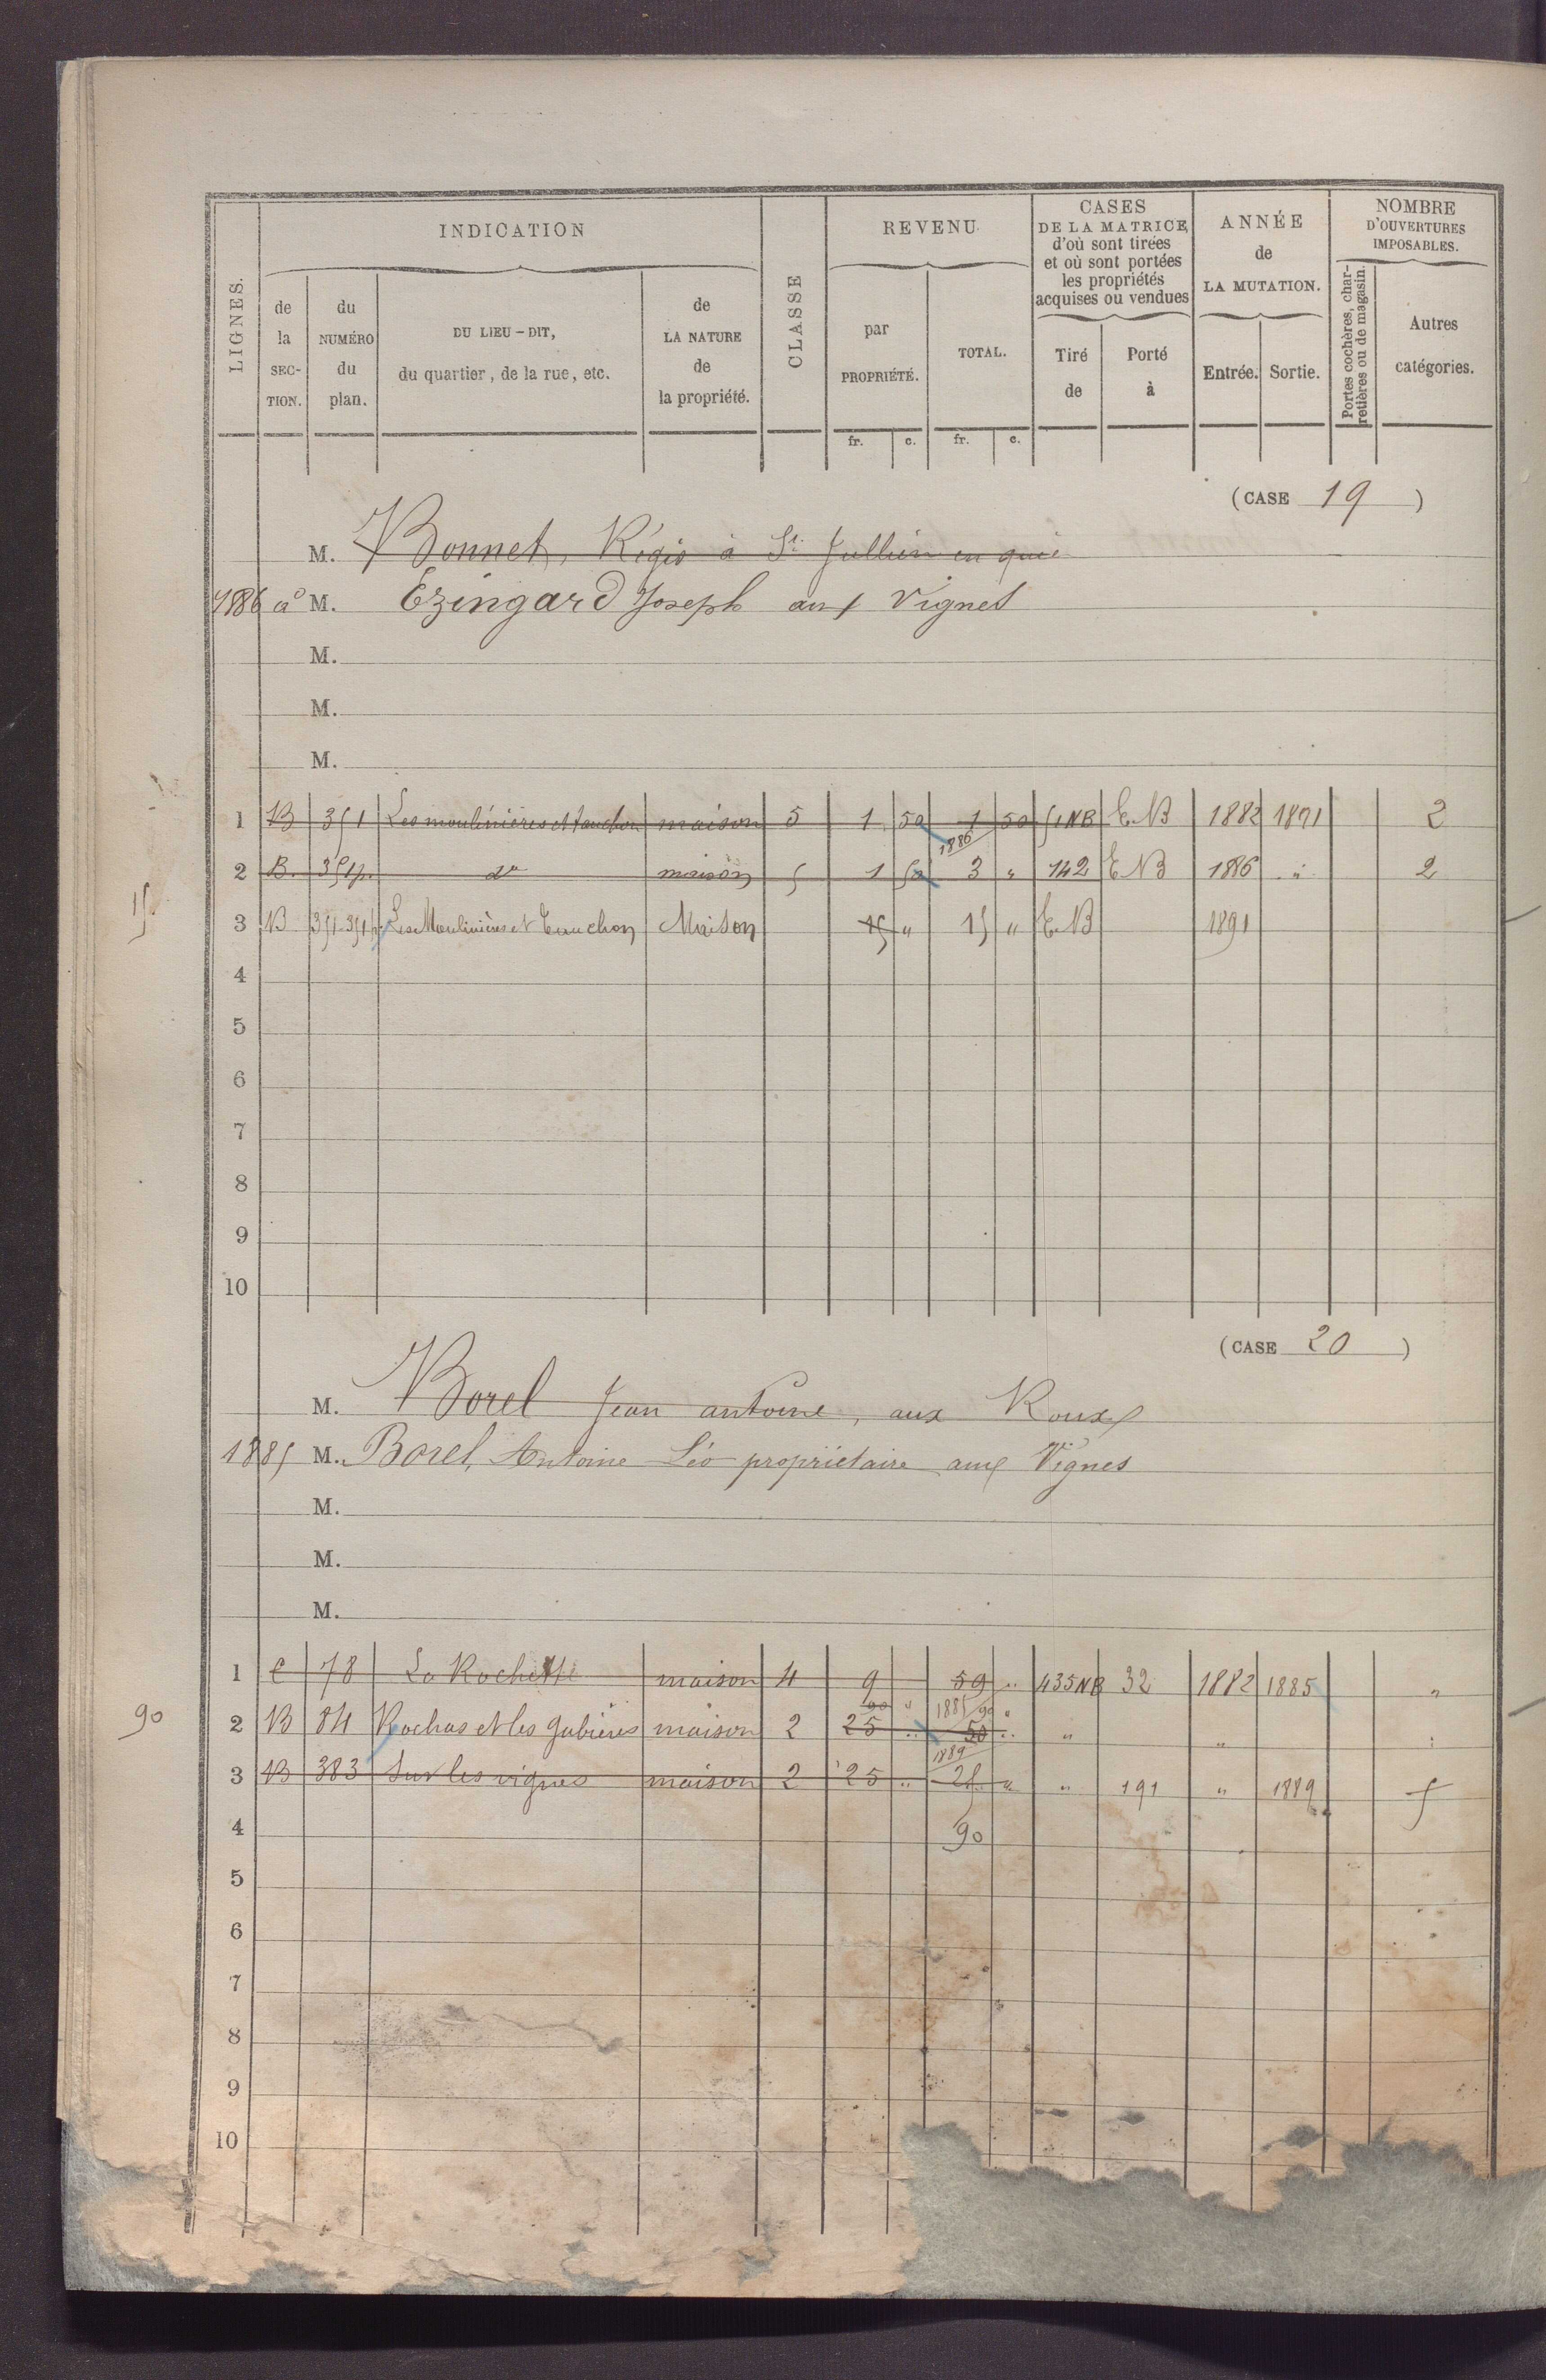 LIGNES.
INDICATION
de la SECTION.
du NUMÉRO du plan.
DU LIEU-DIT, du quartier, de la rue, etc.
de LA NATURE de la propriété.
CLASSE
REVENU
par PROPRIÉTÉ.
TOTAL.
fr. c. fr. c.
CASES DE LA MATRICE d'où sont tirées et où sont portées les propriétés acquises ou vendues
Tiré de
Porté à
ANNÉE de LA MUTATION.
Entrée.
Sortie.
NOMBRE D'OUVERTURES IMPOSABLES.
Portes cochères, charretières ou de magasin.
Autres catégories.
(CASE 19)
M. Bonnet, Régis à St Jullien en
1886 M. Ezingard Joseph aux Vignes
M.
M.
M.
1 B 351 Les moulinières et fauchon maison 5 1 50 1 50 51NB E.NB 1882 1891 2
1886
2 B. 351p. do maison 5 1 50 3 " 142 E NB 1886 " 2
15
3 B 351-351p. Les Moulinières et Maison 15 " 15 " E.NB 1891
4
5
6
7
8
9
10
(CASE 20)
M. Borel Jean antoine, aux Roux
1885 M. Borel, Antoine Léo propriétaire aux Vignes
M.
M.
M.
1 C 78 La Rochette maison 4 9 59 .. 435NB 32 1882 1885 "
90 " 1885 90 "
90
2 B 84 Rochas et les Gubières maison 2 25 .. 50 .. " "
1889
3 B 383 Sur les vignes maison 2 25 .. 25 " " 191 " 1889 5
4 90
5
6
7
8
9
10